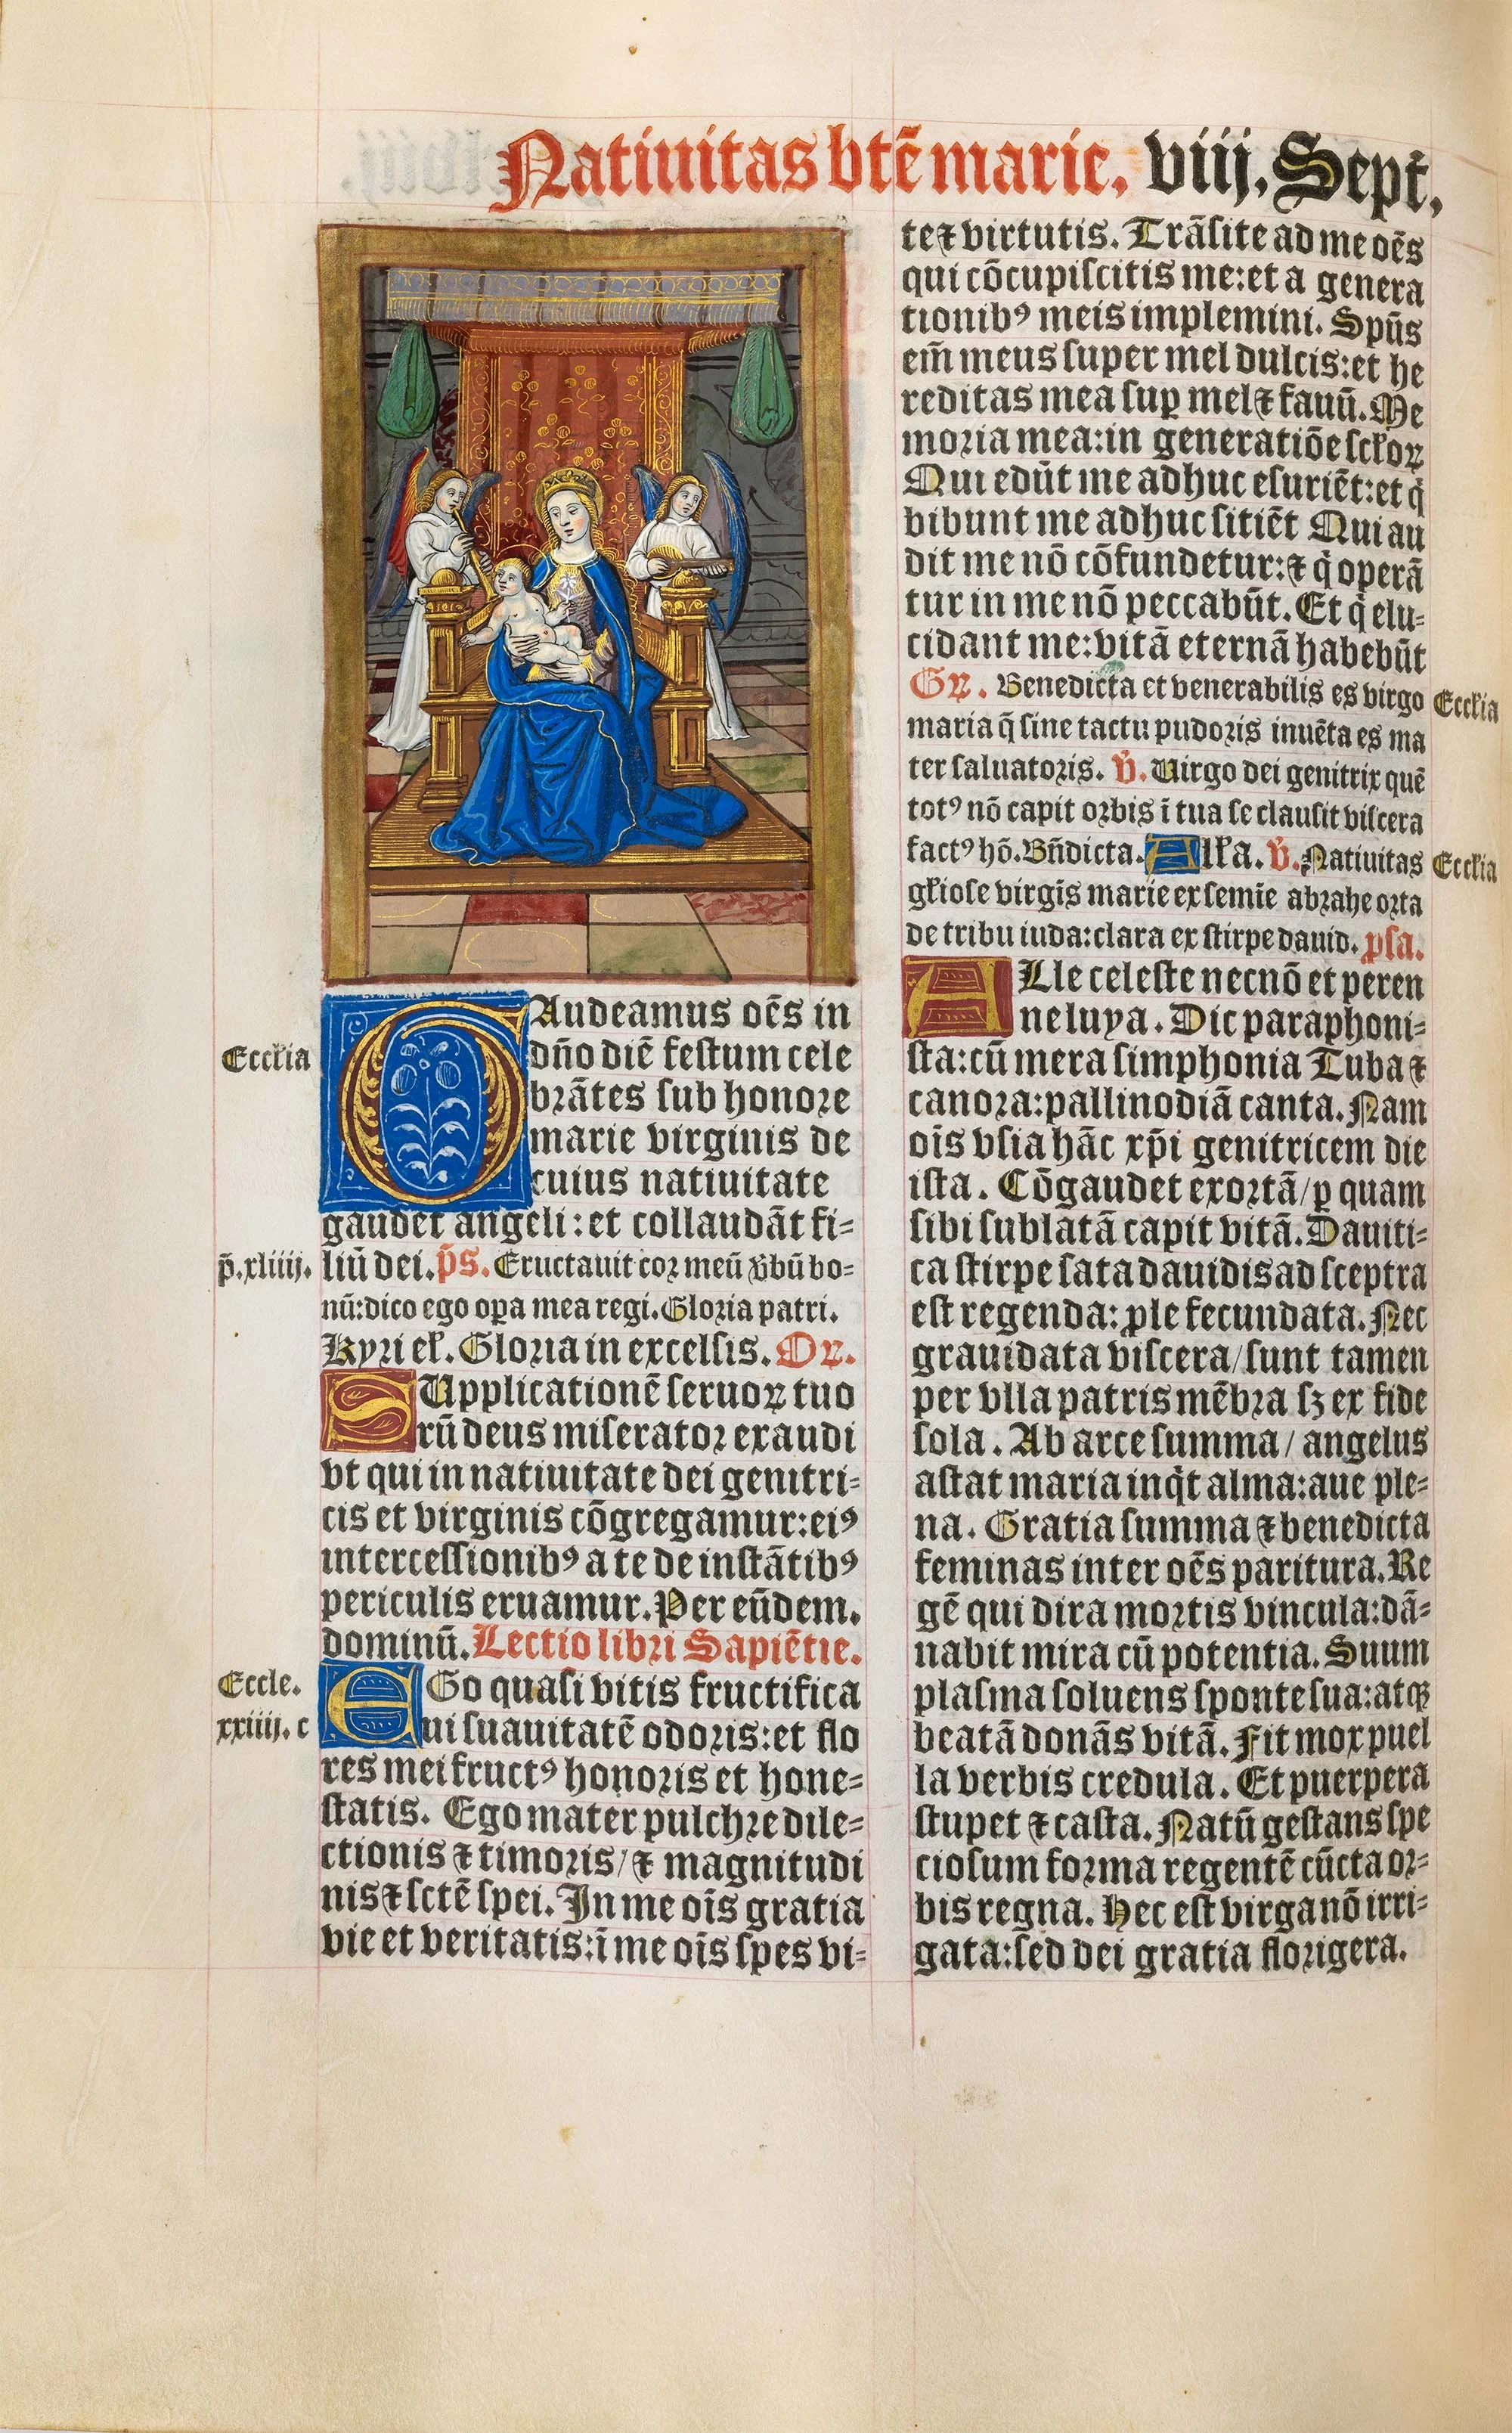 Natiuitas btē marie. viij. Sept.
Audeamus oēs in
Eccl'ia
dn̄o diē festum cele
brātes sub honore
marie virginis de
cuius natiuitate
gaudēt angeli: et collaudāt fi=
p̄. xliiij.
liū dei. p̄s. Eructauit cor meū v̄bū bo=
nū: dico ego oꝑa mea regi. Gloria patri.
Kyri el'. Gloria in excelsis. Oꝝ.
SUpplicationē seruoꝝ tuo
rū deus miserator exaudi
vt qui in natiuitate dei genitri=
cis et virginis cōgregamur: eiꝰ
intercessionibꝰ a te de instātibꝰ
periculis eruamur. Per eūdem.
dominū. Lectio libri Sapiētie.
Eccle.
EGo quasi vitis fructifica
xxiiij. c
ui suauitatē odoris: et flo
res mei fructꝰ honoris et hone=
statis. Ego mater pulchre dile=
ctionis ⁊ timoris/ ⁊ magnitudi
nis ⁊ sctē spei. In me oīs gratia
vie et veritatis: ī me oīs spes vi=
te ⁊ virtutis. Trāsite ad me oēs
qui cōcupiscitis me: et a genera
tionibꝰ meis implemini. Spūs
em̄ meus super mel dulcis: et he
reditas mea suꝑ mel ⁊ fauū. Me
moria mea: in generatiōe scl'oꝝ
Qui edūt me adhuc esuriēt: et q̇
bibunt me adhuc sitiēt Qui au
dit me nō cōfundetur: ⁊ q̇ operā
tur in me nō peccabūt. Et q̇ elu=
cidant me: vitā eternā habebūt
Gꝝ. Benedicta et venerabilis es virgo
Eccl'ia
maria q̄ sine tactu pudoris inuēta es ma
ter saluatoris. v̄. Uirgo dei genitrix quē
totꝰ nō capit orbis ī tua se clausit viscera
factꝰ hō. Bn̄dicta. All'a. v̄. Natiuitas
Eccl'ia
gl'iose virgīs marie ex semīe abrahe orta
de tribu iuda: clara ex stirpe dauid. ꝓsa.
ALle celeste necnō et peren
ne luya. Dic paraphoni=
sta: cū mera simphonia Tuba ⁊
canora: pallinodiā canta. Nam
oīs vsia hāc xp̄i genitricem die
ista. Cōgaudet exortā/ ꝑ quam
sibi sublatā capit vitā. Dauiti=
ca stirpe sata dauidis ad sceptra
est regenda: ꝓle fecundata. Nec
grauidata viscera/ sunt tamen
per vlla patris mēbra sꝫ ex fide
sola. Ab arce summa/ angelus
astat maria inq̇t alma: aue ple=
na. Gratia summa ⁊ benedicta
feminas inter oēs paritura. Re
gē qui dira mortis vincula: dā=
nabit mira cū potentia. Suum
plasma soluens sponte sua: atqꝫ
beatā donās vitā. Fit mox puel
la verbis credula. Et puerpera
stupet ⁊ casta. Natū gestans spe
ciosum forma regentē cūcta or=
bis regna. Hec est virga nō irri=
gata: sed dei gratia florigera.